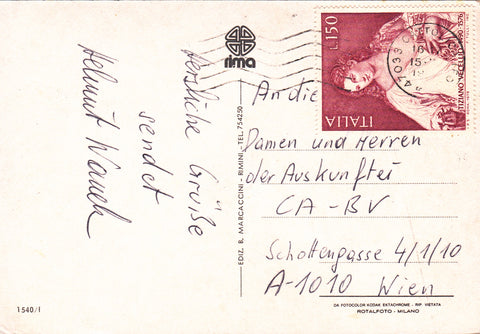 Herzliche Grüße
sendet
Helmut Wanek
rima
EDIZ. B. MARCACCINI - RIMINI - TEL. 754250
1540/I
L.150
ITALIA
TIZIANO VECELLIO
47033
16
15
An die
Damen und Herren
der Auskunftei
CA-BV
Schottengasse 4/1/10
A-1010 Wien
DA FOTOCOLOR KODAK EKTACHROME - RIP. VIETATA
ROTALFOTO - MILANO